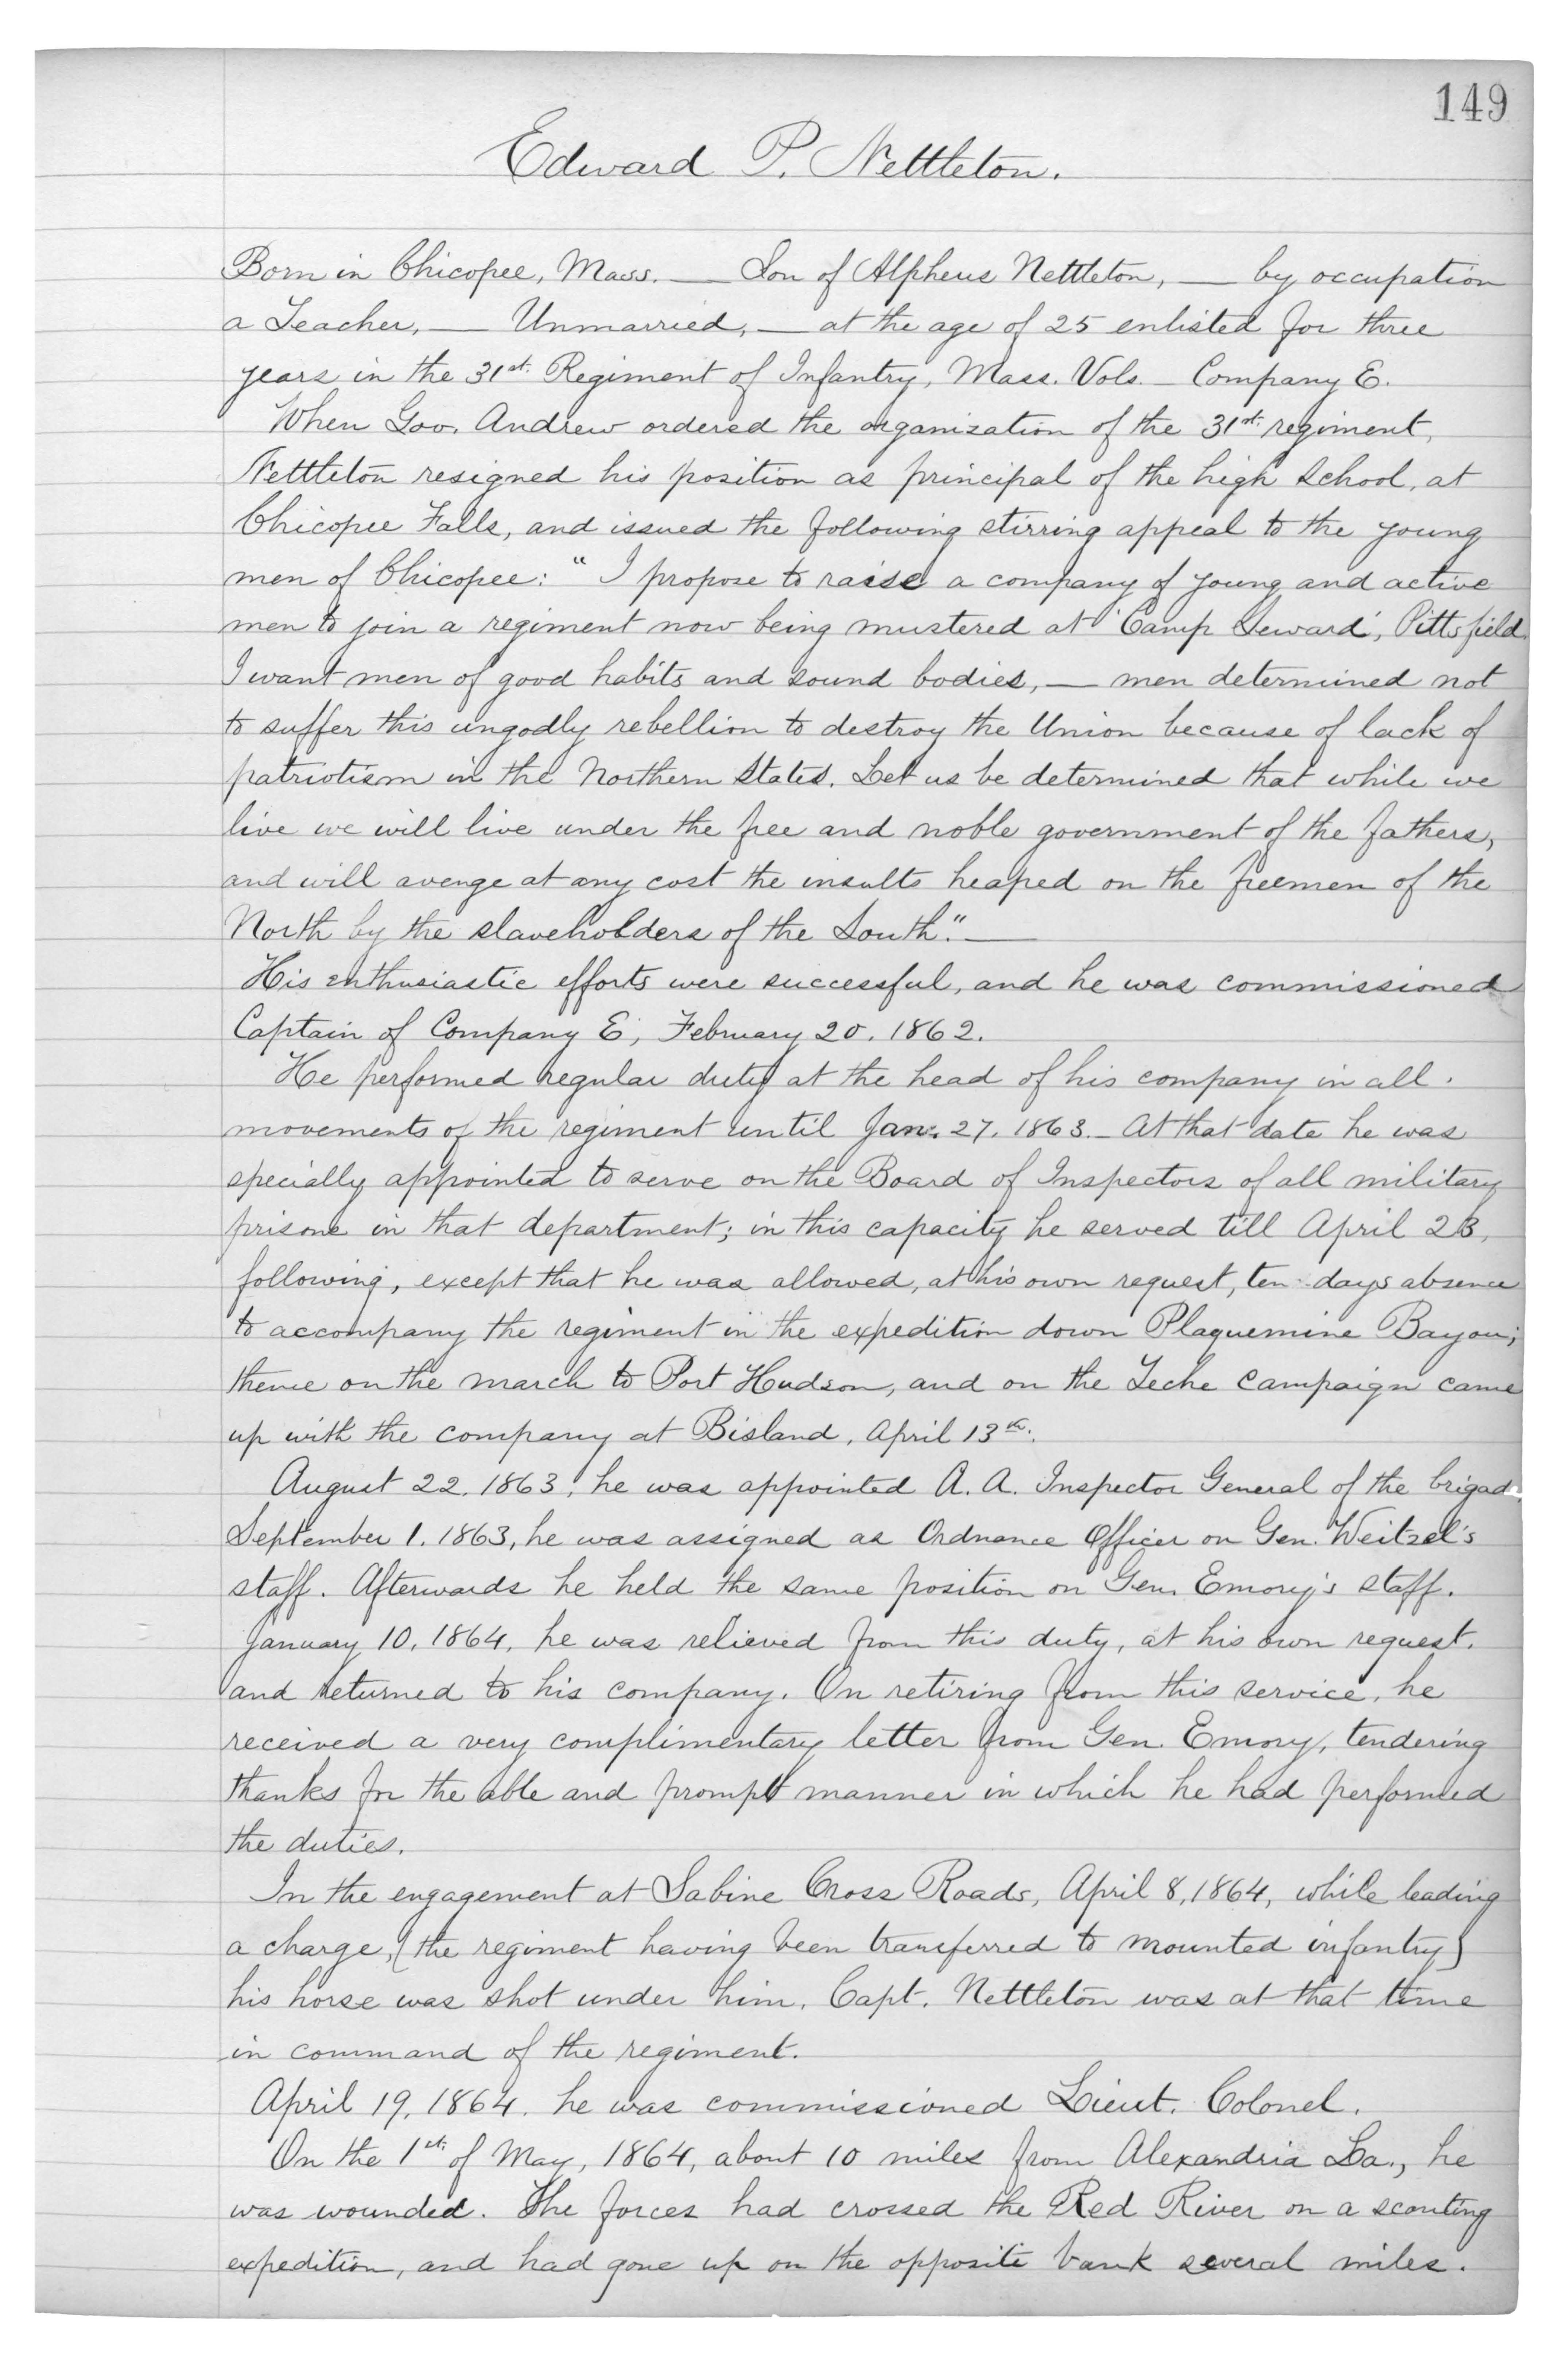 149
Edward P. Nettleton.
Born in Chicopee, Mass. — Son of Alpheus Nettleton, — by occupation
a Teacher, — Unmarried, — at the age of 25 enlisted for three
years in the 31st. Regiment of Infantry, Mass. Vols. — Company E.
When Gov. Andrew ordered the organization of the 31st. regiment,
Nettleton resigned his position as principal of the high school, at
Chicopee Falls, and issued the following stirring appeal to the young
men of Chicopee: "I propose to raise a company of young and active
men to join a regiment now being mustered at 'Camp Seward', Pittsfield.
I want men of good habits and sound bodies, — men determined not
to suffer this ungodly rebellion to destroy the Union because of lack of
patriotism in the Northern States. Let us be determined that while we
live we will live under the free and noble government of the fathers,
and will avenge at any cost the insults heaped on the freemen of the
North by the slaveholders of the South." —
His enthusiastic efforts were successful, and he was commissioned
Captain of Company E, February 20, 1862.
He performed regular duty at the head of his company in all
movements of the regiment until Jan. 27, 1863. — At that date he was
specially appointed to serve on the Board of Inspectors of all military
prisons in that department; in this capacity he served till April 23,
following, except that he was allowed, at his own request, ten days absence
to accompany the regiment in the expedition down Plaquemine Bayou;
thence on the march to Port Hudson, and on the Teche Campaign came
up with the company at Bisland, April 13th.
August 22, 1863, he was appointed A. A. Inspector General of the brigade.
September 1. 1863, he was assigned as Ordnance Officer on Gen. Weitzel's
staff. Afterwards he held the same position on Gen. Emory's staff.
January 10, 1864, he was relieved from this duty, at his own request.
and returned to his company. On retiring from this service, he
received a very complimentary letter from Gen. Emory, tendering
thanks for the able and prompt manner in which he had performed
the duties.
In the engagement at Sabine Cross Roads, April 8, 1864, while leading
a charge, (the regiment having been transferred to mounted infantry)
his horse was shot under him. Capt. Nettleton was at that time
in command of the regiment.
April 19, 1864, he was commissioned Lieut. Colonel.
On the 1st. of May, 1864, about 10 miles from Alexandria La., he
was wounded. The forces had crossed the Red River on a scouting
expedition, and had gone up on the opposite bank several miles.